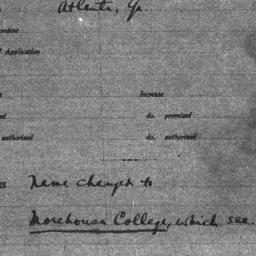 Atlanta, Ga.
Application
Increase
do. promised
authorized do. authorized
Name changed to
Morehouse College, which see.